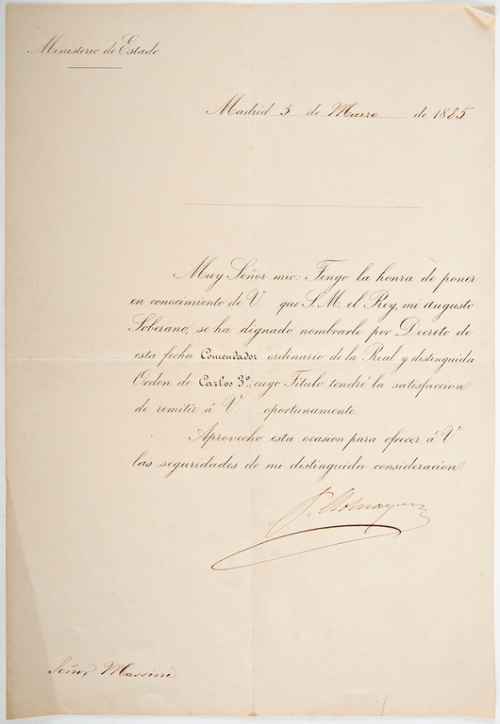 Ministerio de Estado
Madrid 5 de Marzo de 1885
Muy Señor mio: Tengo la honra de poner
en conocimiento de V que S. M. el Rey, mi augusto
Soberano, se ha dignado nombrarle por Decreto de
esta fecha Comendador ordinario de la Real y distinguida
Orden de Carlos 3º, cuyo Titulo tendré la satisfaccion
de remitir á V. oportunamente.
Aprovecho esta ocasion para ofrecer á V.
las seguridades de mi distinguida consideracion
Señor Massini